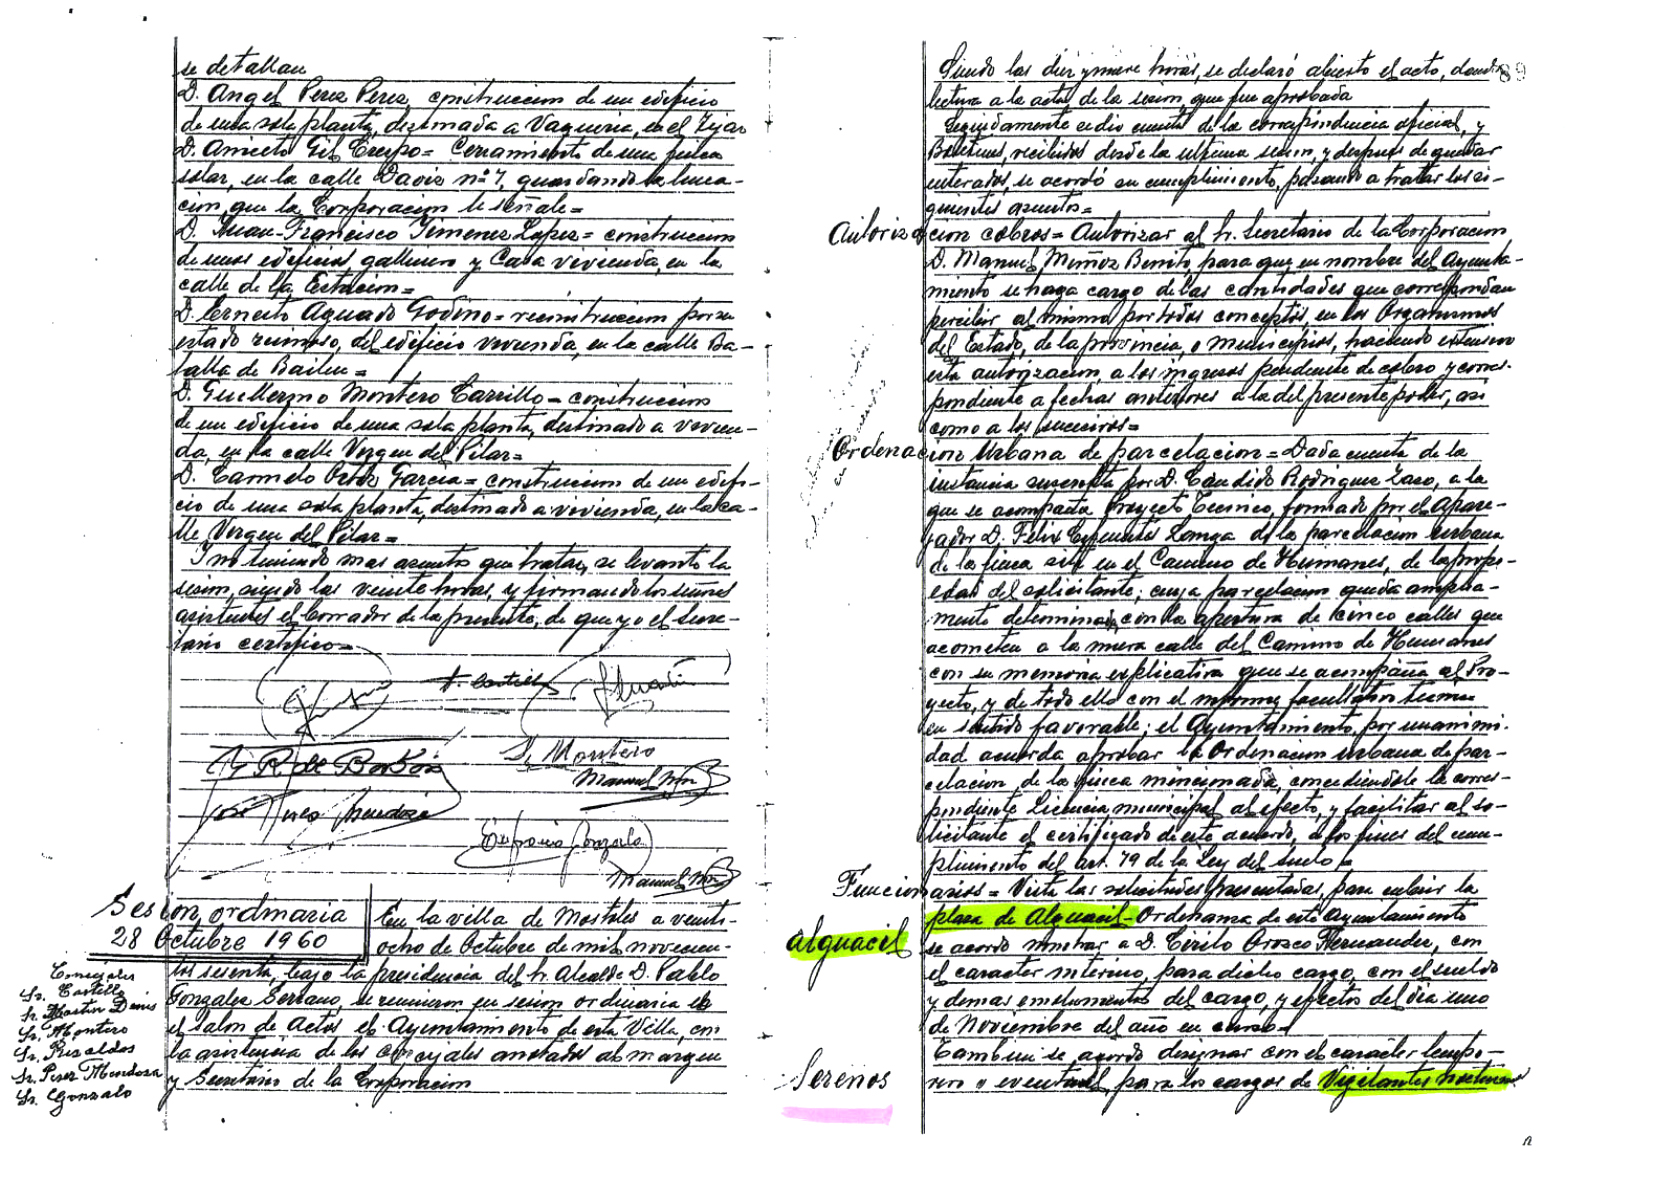 se detallan
D. Angel Perez Perez, construccion de un edificio
de una sola planta, destinada a Vaqueria, en el Tejar
D. Aniceto Gil Crespo= Cerramiento de una finca
solar, en la calle Daoiz nº 7, guardando la linea-
cion, que la Corporacion le señale=
D. Juan-Francisco Gimenez Lopez= construccion
de unos edificios gallinero y Casa vivienda, en la
calle de la Estacion=
D. Ernesto Aguado Godino= reconstruccion por su
estado ruinoso, del edificio vivienda, en la calle Ba-
talla de Bailen=
D. Guillermo Montero Carrillo= construccion
de un edificio de una sola planta, destinado a vivien-
da, en la calle Virgen del Pilar=
D. Carmelo Ortiz Garcia= construccion de un edifi-
cio de una sola planta, destinado a vivienda, en la ca-
lle Virgen del Pilar=
Y no teniendo mas asuntos que tratar, se levantó la
sesion, siendo las veinte horas, y firmando los señores
asistentes el borrador de la presente, de que yo el Secre-
tario certifico=
A. Castillo
R. de Borbón
S. Montero
Manuel
José Perez Mendoza
Eufrasio Gonzalo
Manuel
Sesion, ordinaria
28 Octubre 1960
En la villa de Mostoles a veinti-
ocho de Octubre de mil novecien-
tos sesenta, bajo la presidencia del Sr. Alcalde D. Pablo
Gonzalez Serrano, se reunieron en sesion ordinaria en
el salon de Actos el Ayuntamiento de esta Villa, con
la asistencia de los Concejales anotados al margen
y Secretario de la Corporacion
Concejales
Sr. Castillo
Sr. Martin Denis
Sr. Montero
Sr. Rizaldos
Sr. Perez Mendoza
Sr. Gonzalo
89
Siendo las diez y nueve horas, se declaró abierto el acto, dando
lectura a la acta de la sesion, que fue aprobada
Seguidamente se dio cuenta de la correspondencia oficial, y
Boletines, recibidos desde la ultima sesion, y despues de quedar
enterados, se acordó su cumplimiento, pasando a tratar los si-
guientes asuntos=
Autorizacion cobros= Autorizar al Sr. Secretario de la Corporacion
D. Manuel Muñoz Benito, para que en nombre del Ayunta-
miento se haga cargo de las cantidades que correspondan
percibir al mismo por todos conceptos, en los Organismos
del Estado, de la provincia, o municipios, haciendo extensivo
esta autorizacion, a los ingresos pendiente de cobro y corres-
pondiente a fechas anteriores a la del presente poder, asi
como a los sucesivos=
Ordenacion Urbana de parcelacion= Dada cuenta de la
instancia suscrita por D. Candido Rodriguez Lazo, a la
que se acompaña Proyecto Tecnico, formado por el Apare-
jador D. Felix Cifuentes Langa de la parcelacion urbana
de la finca sita en el Camino de Humanes, de la propi-
edad del solicitante; cuya parcelacion queda amplia-
mente determinada con la apertura de cinco calles que
acometen a la nueva calle del Camino de Humanes
con su memoria explicativa que se acompaña al Pro-
yecto, y de todo ello con el informe facultativo tecnico
en sentido favorable; el Ayuntamiento, por unanimi-
dad acuerda aprobar la Ordenacion urbana de par-
celacion de la finca mencionada, concediendole la corres-
pondiente Licencia municipal al efecto, y facilitar al so-
licitante el certificado de este acuerdo, a los fines del cum-
plimiento del art. 79 de la Ley del suelo=
Funcionarios= Vista las solicitudes presentadas, para cubrir la
plaza de Alguacil-Ordenanza de este Ayuntamiento
alguacil
se acordo nombrar a D. Cirilo Orozco Hernandez, con
el caracter interino, para dicho cargo, con el sueldo
y demas emolumentos del cargo, y efectos del dia uno
de Noviembre del año en curso=
Tambien se acordo designar con el caracter tempo-
Serenos
rero o eventual, para los cargos de Vigilantes nocturnos